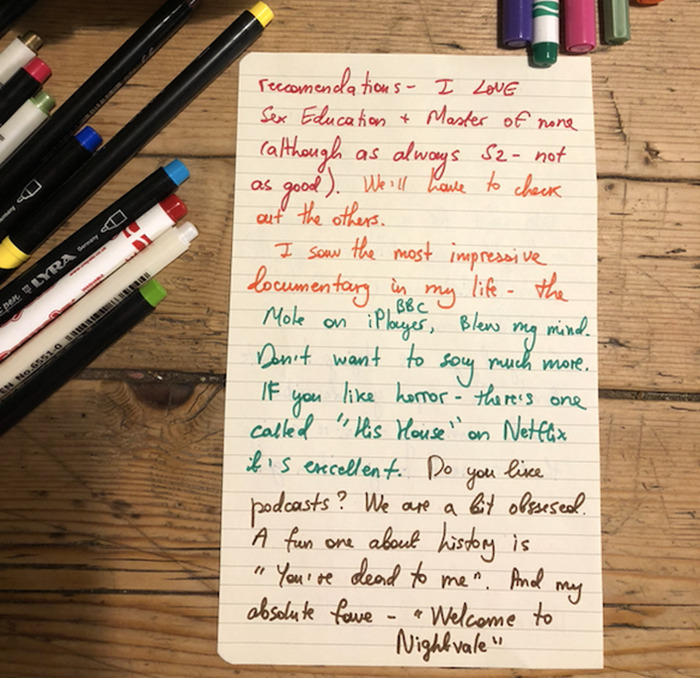 reccomendations - I LOVE
Sex Education + Master of none
(although as always S2 - not
as good). We'll have to check
out the others.
I saw the most impressive
documentary in my life - the
Mole on BBC iPlayer, Blew my mind.
Don't want to say much more.
IF you like horror - there's one
called "His House" on Netflix
it's excellent. Do you like
podcasts? We are a bit obssesed.
A fun one about history is
"You're dead to me". And my
absolute fave - "Welcome to
Nightvale"
LYRA
Germany
No.6551-0